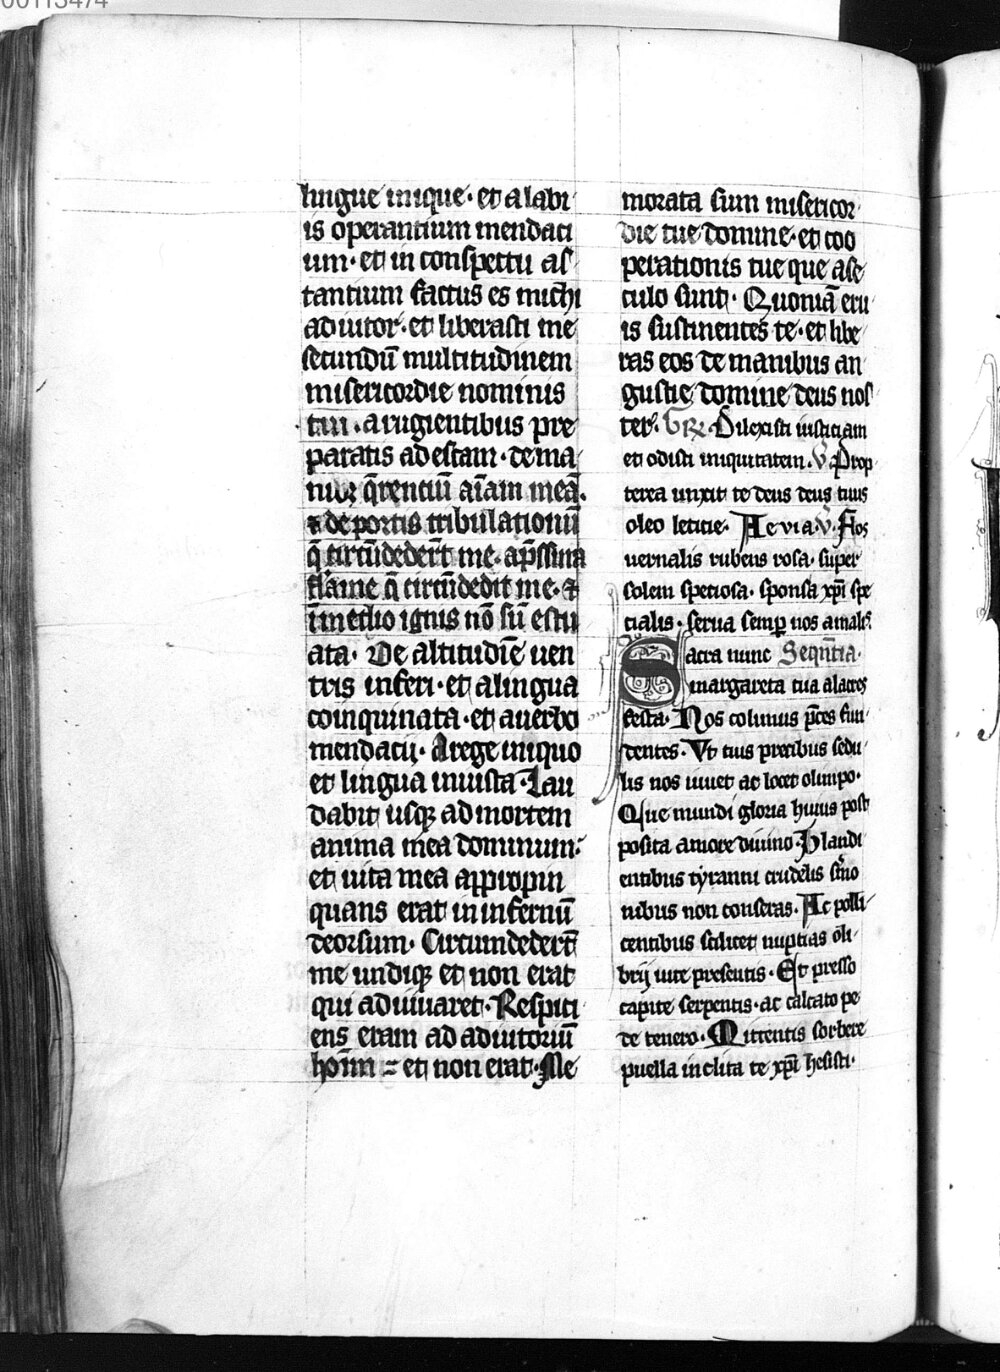 00113474
lingue inique · et a labi
is operantium mendaci
um · et in conspectu as
tantium factus es michi
adiutor · et liberasti me
secundū multitudinem
misericordie nominis
tui · a rugientibus pre
paratis ad escam · de ma
nibꝫ q̄rentiū aīam meā ·
⁊ de portis tribulationū
q̄ circūdederūt me · a p̄ssura
flāme q̄ circūdedit me · ⁊
ī medio ignis nō sū estu
ata · De altitudīe uen
tris inferi · et a lingua
coinquinata · et a uerbo
mendacij · A rege iniquo
et lingua iniusta · Lau
dabit usqꝫ ad mortem
anima mea dominum ·
et uita mea appropin
quans erat in infernū
deorsum · Circumdederūt
me undiqꝫ et non erat
qui adiuuaret · Respici
ens eram ad adiutoriū
hoīm = et non erat · Me
morata sum misericor
die tue domine · et coo
perationis tue que a se
culo sunt · Quoniā eru
is sustinentes te · et libe
ras eos de manibus an
gustie domine deus nos
ter · Gr̄ · Dilexisti iusticiam
et odisti iniquitatem · V̄ Prop
terea unxit te deus deus tuus
oleo leticie · Aeuia · V̄ · Flos
uernalis rubens rosa · super
solem speciosa · sponsa xp̄i spe
cialis · serua semꝑ nos a malis ·
Sacra nunc Seqūntia ·
margareta tua alacres
festa · Nos colimus p̄ces fun
dentes · Vt tuis precibus sedu
lis nos iuuet ac locet olimpo ·
Que mundi gloria huius post
posita amore diuino · Blandi
entibus tyranni crudelis s̄mo
nibus non conseras · Ac polli
centibus scilicet nuptias oli
brij uite presentis · Et presso
capite serpentis · ac calcato pe
de tenero · Mittentis sorbere
puella inclita te xp̄i hesisti ·